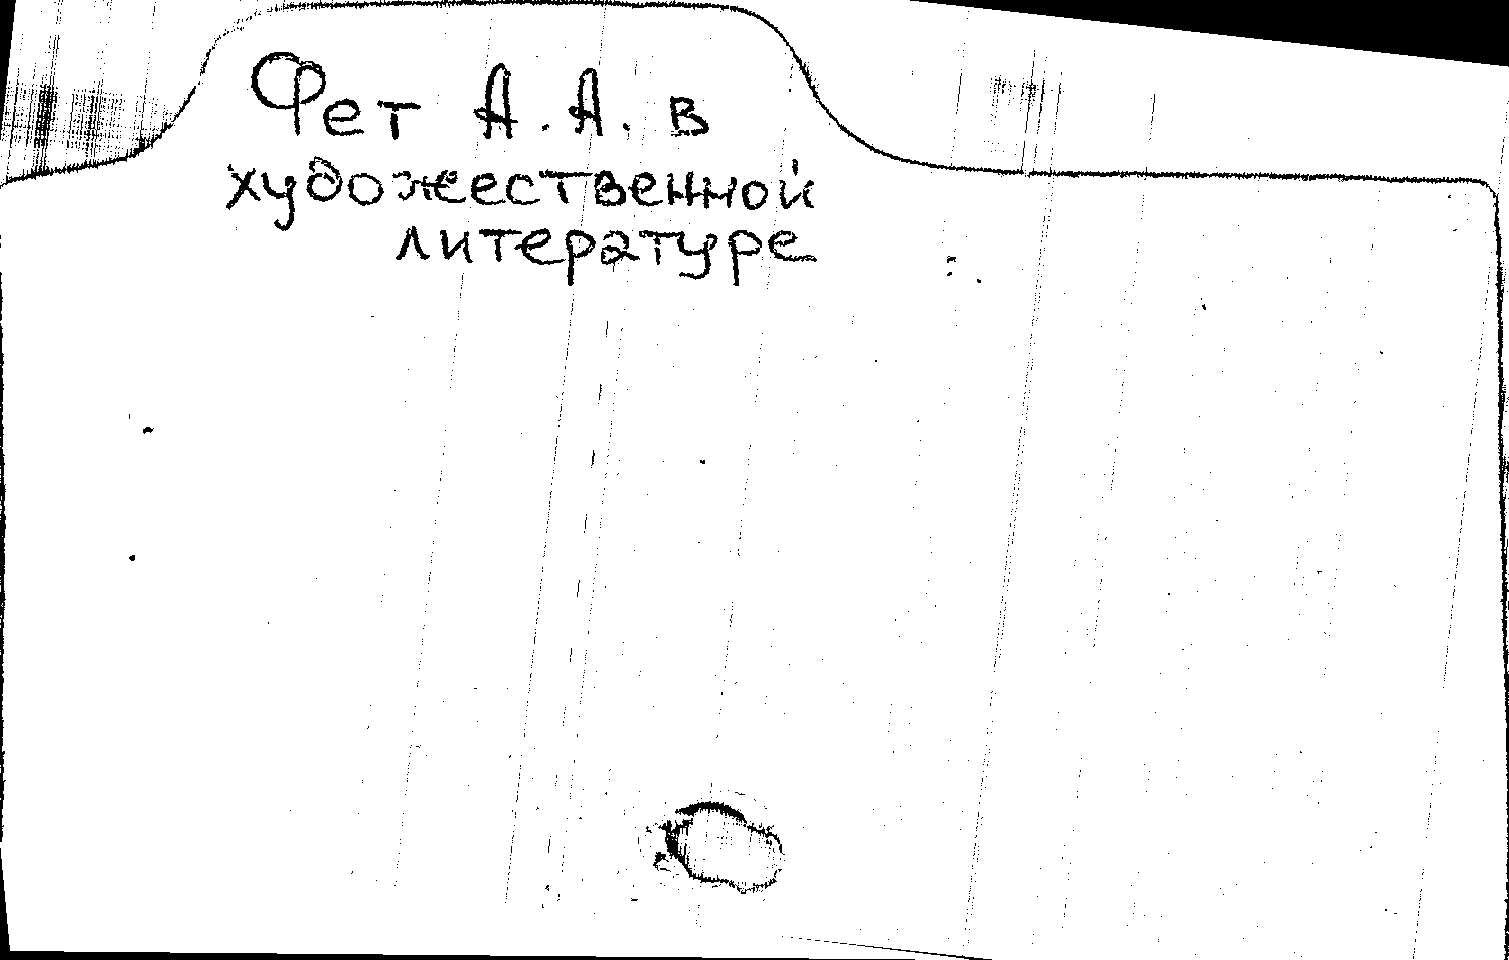 Фет А.А. в
художественной
литературе